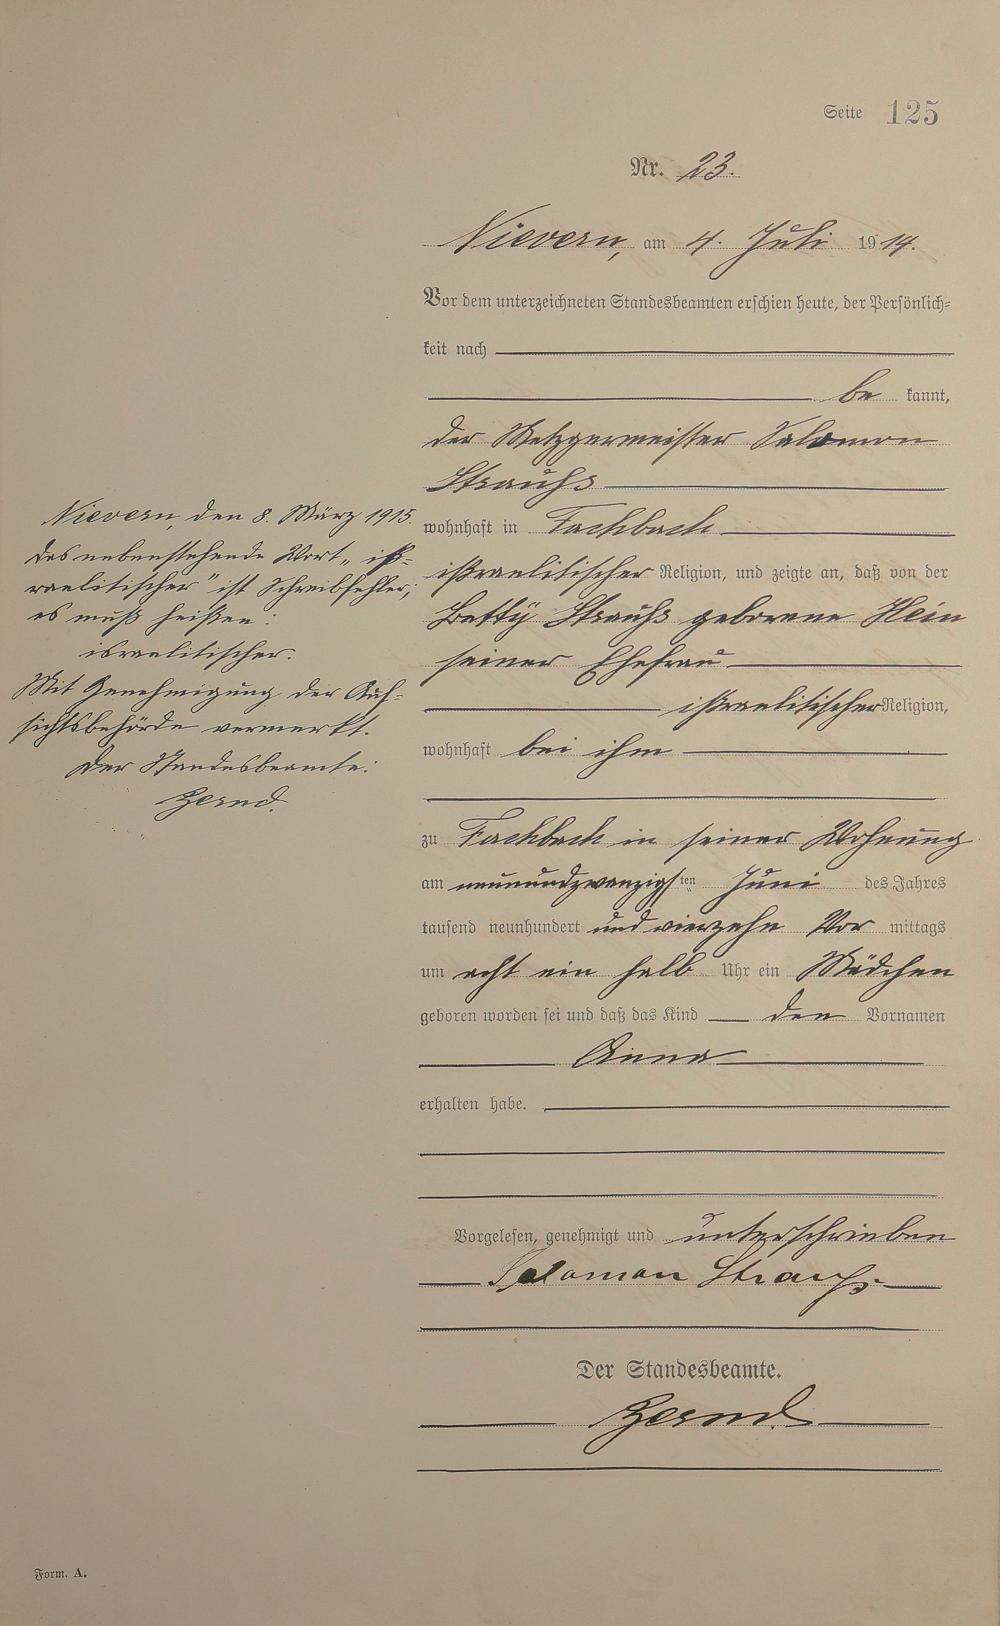 Seite 125
Nr. 23.
Nievern, am 4. Juli 1914.
Vor dem unterzeichneten Standesbeamten erschien heute, der Persönlich-
keit nach
be kannt,
der Metzgermeister Salomon
Strauß
wohnhaft in Fachbach
ißraelitischer Religion, und zeigte an, daß von der
Betty Strauß geborene Hein
seiner Ehefrau
ißraelitischer Religion,
wohnhaft bei ihm
zu Fachbach in seiner Wohnung
am neunundzwanzigsten Juni des Jahres
tausend neunhundert und vierzehn Vor mittags
um acht ein halb Uhr ein Mädchen
geboren worden sei und daß das Kind den Vornamen
Anna
erhalten habe.
Vorgelesen, genehmigt und unterschrieben
Salomon Strauß
Der Standesbeamte.
Zernd
Nievern, den 8. März 1915.
Das nebenstehende Wort „iß-
raelitischer" ist Schreibfehler;
es muß heißen:
israelitischer.
Mit Genehmigung der Auf-
sichtsbehörde vermerkt.
Der Standesbeamte:
Zernd.
Form. A.